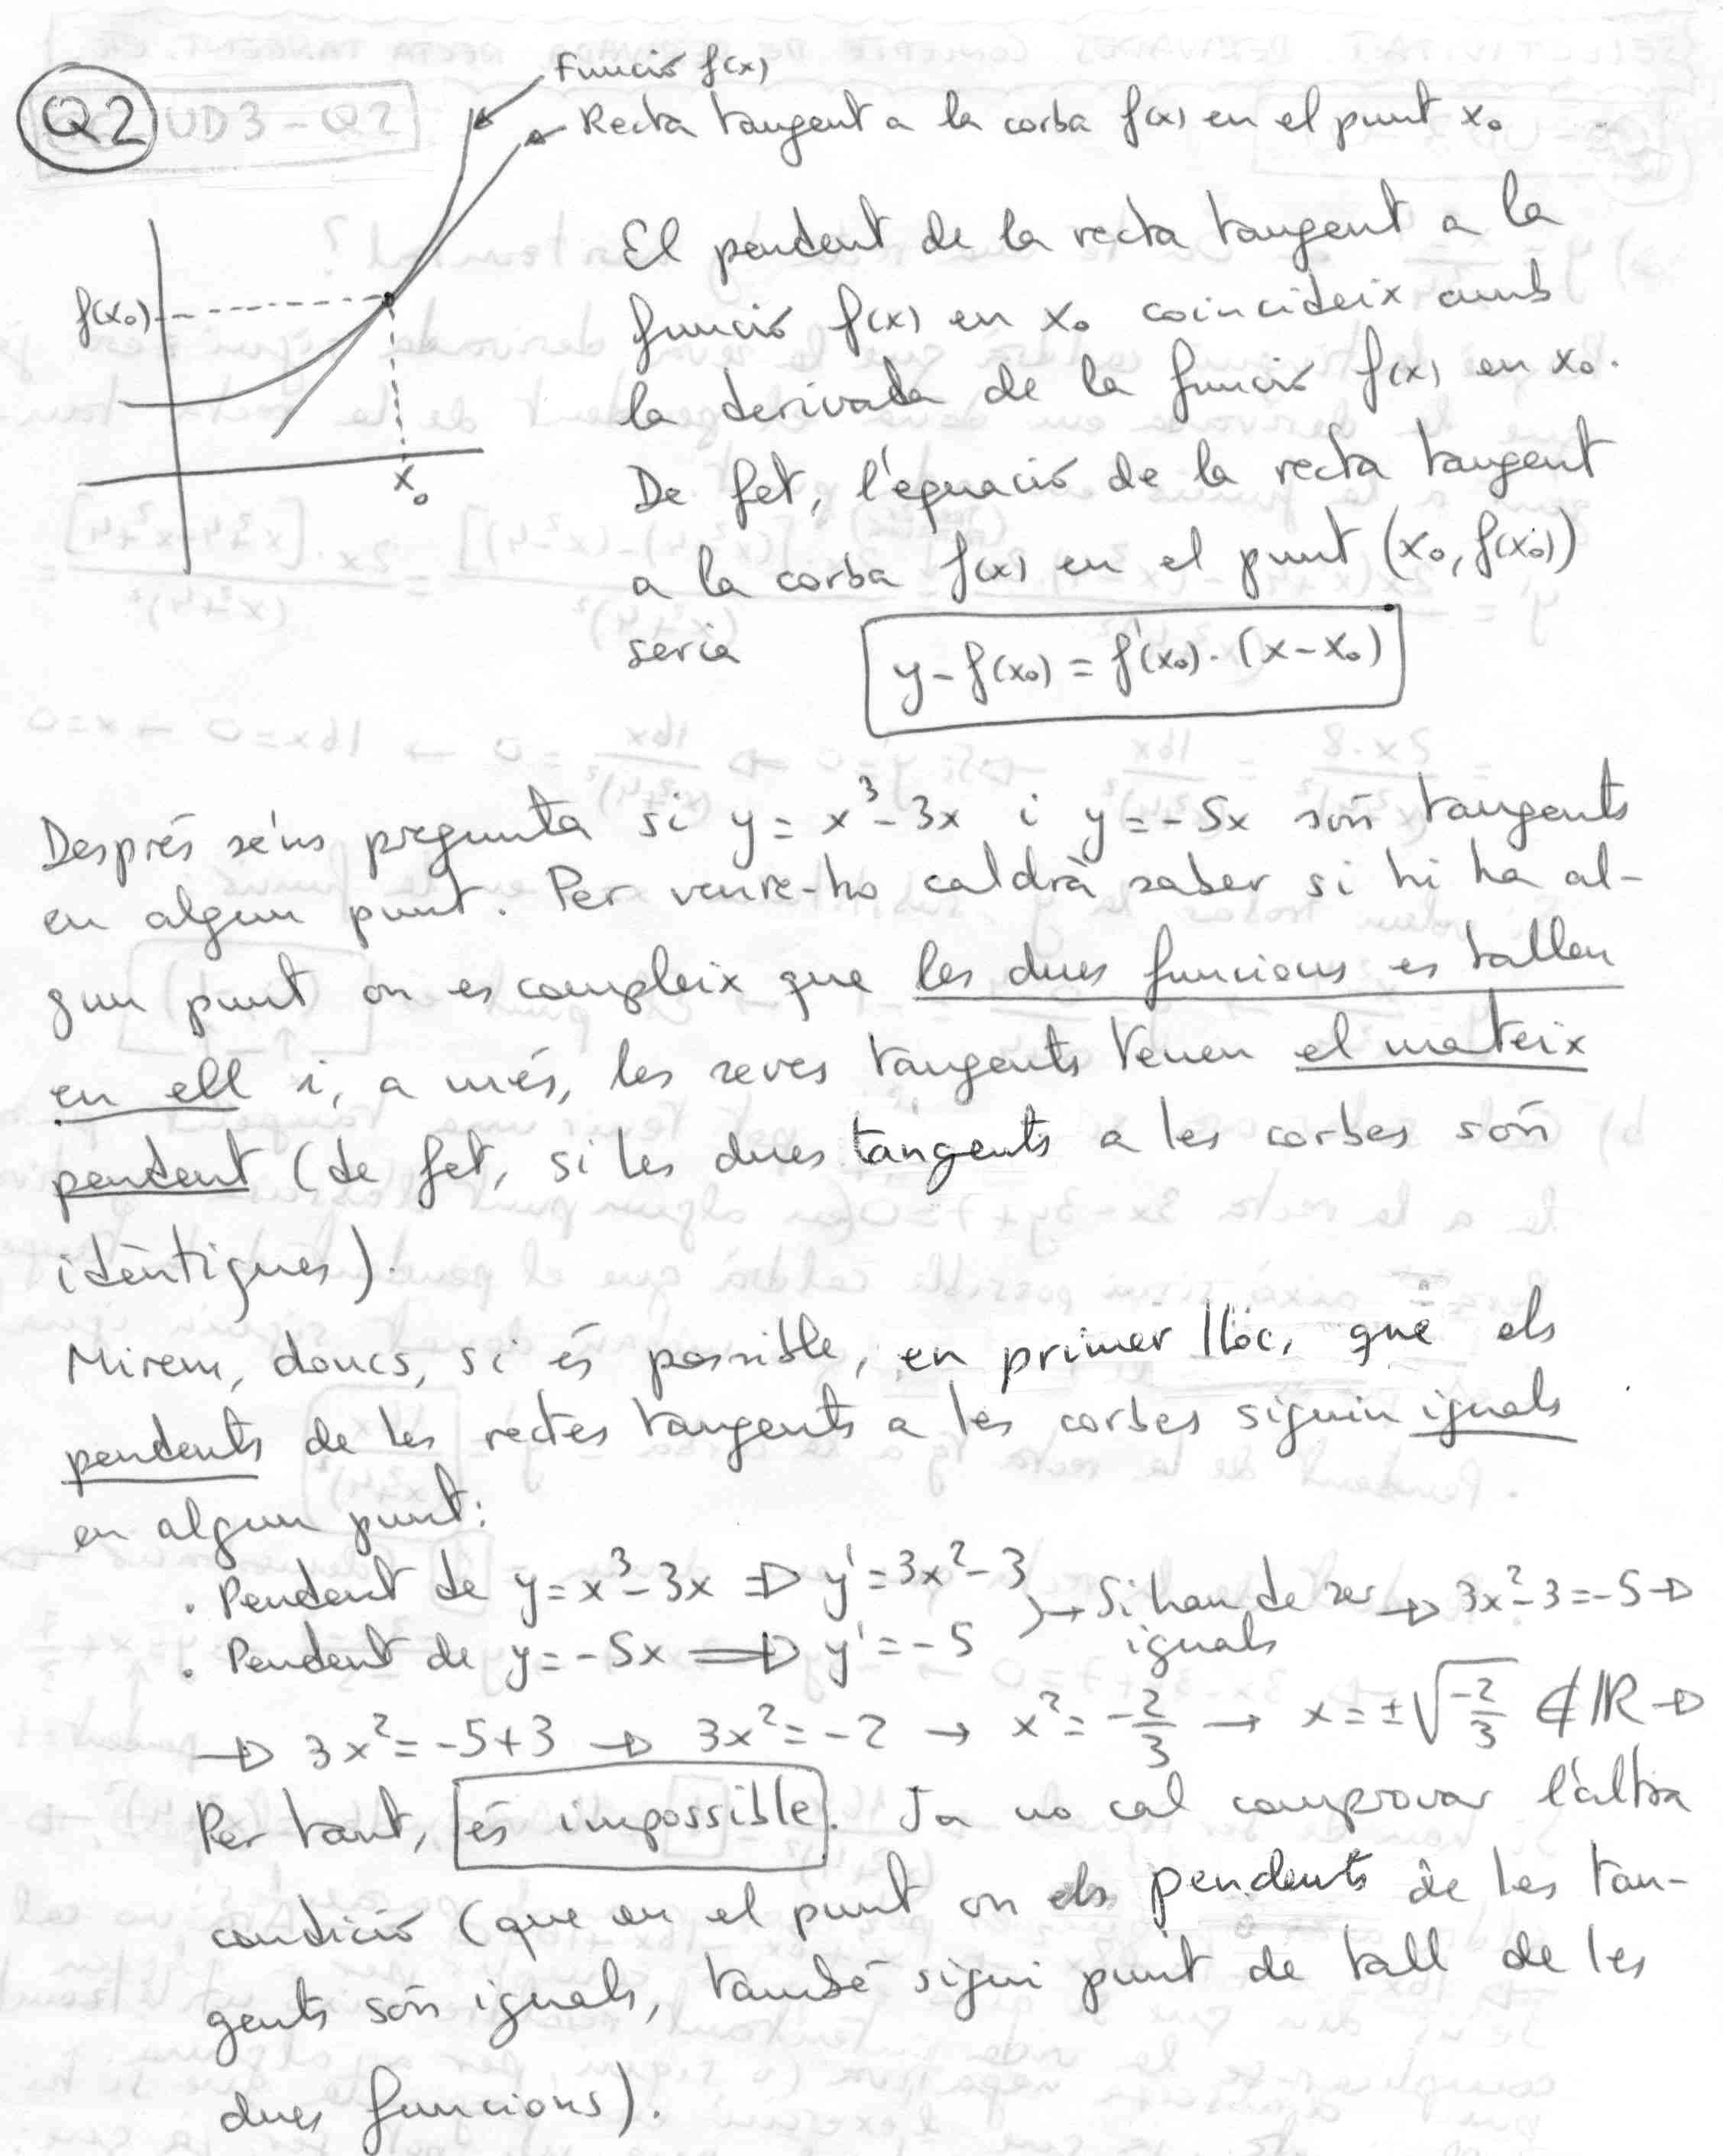 Funció f(x)
Q2 UD3-Q2
Recta tangent a la corba f(x) en el punt x₀
El pendent de la recta tangent a la
funció f(x) en x₀ coincideix amb
f(x₀)
la derivada de la funció f(x) en x₀.
x₀
De fet, l'equació de la recta tangent
a la corba f(x) en el punt (x₀, f(x₀))
seria y-f(x₀) = f'(x₀)·(x-x₀)
Després se'ns pregunta si y = x³-3x i y=-5x són tangents
en algun punt. Per veure-ho caldrà saber si hi ha al-
gun punt on es compleix que les dues funcions es tallen
en ell i, a més, les seves tangents tenen el mateix
pendent (de fet, si les dues tangents a les corbes són
idèntiques).
Mirem, doncs, si és possible, en primer lloc, que els
pendents de les rectes tangents a les corbes siguin iguals
en algun punt:
· Pendent de y=x³-3x ⇒ y'=3x²-3
· Pendent de y=-5x ⇒ y'=-5
→ Si han de ser iguals → 3x²-3=-5 →
→ 3x²=-5+3 → 3x²=-2 → x²=-2/3 → x=±√(-2/3) ∉ ℝ →
Per tant, és impossible. Ja no cal comprovar l'altra
condició (que en el punt on els pendents de les tan-
gents són iguals, també sigui punt de tall de les
dues funcions).